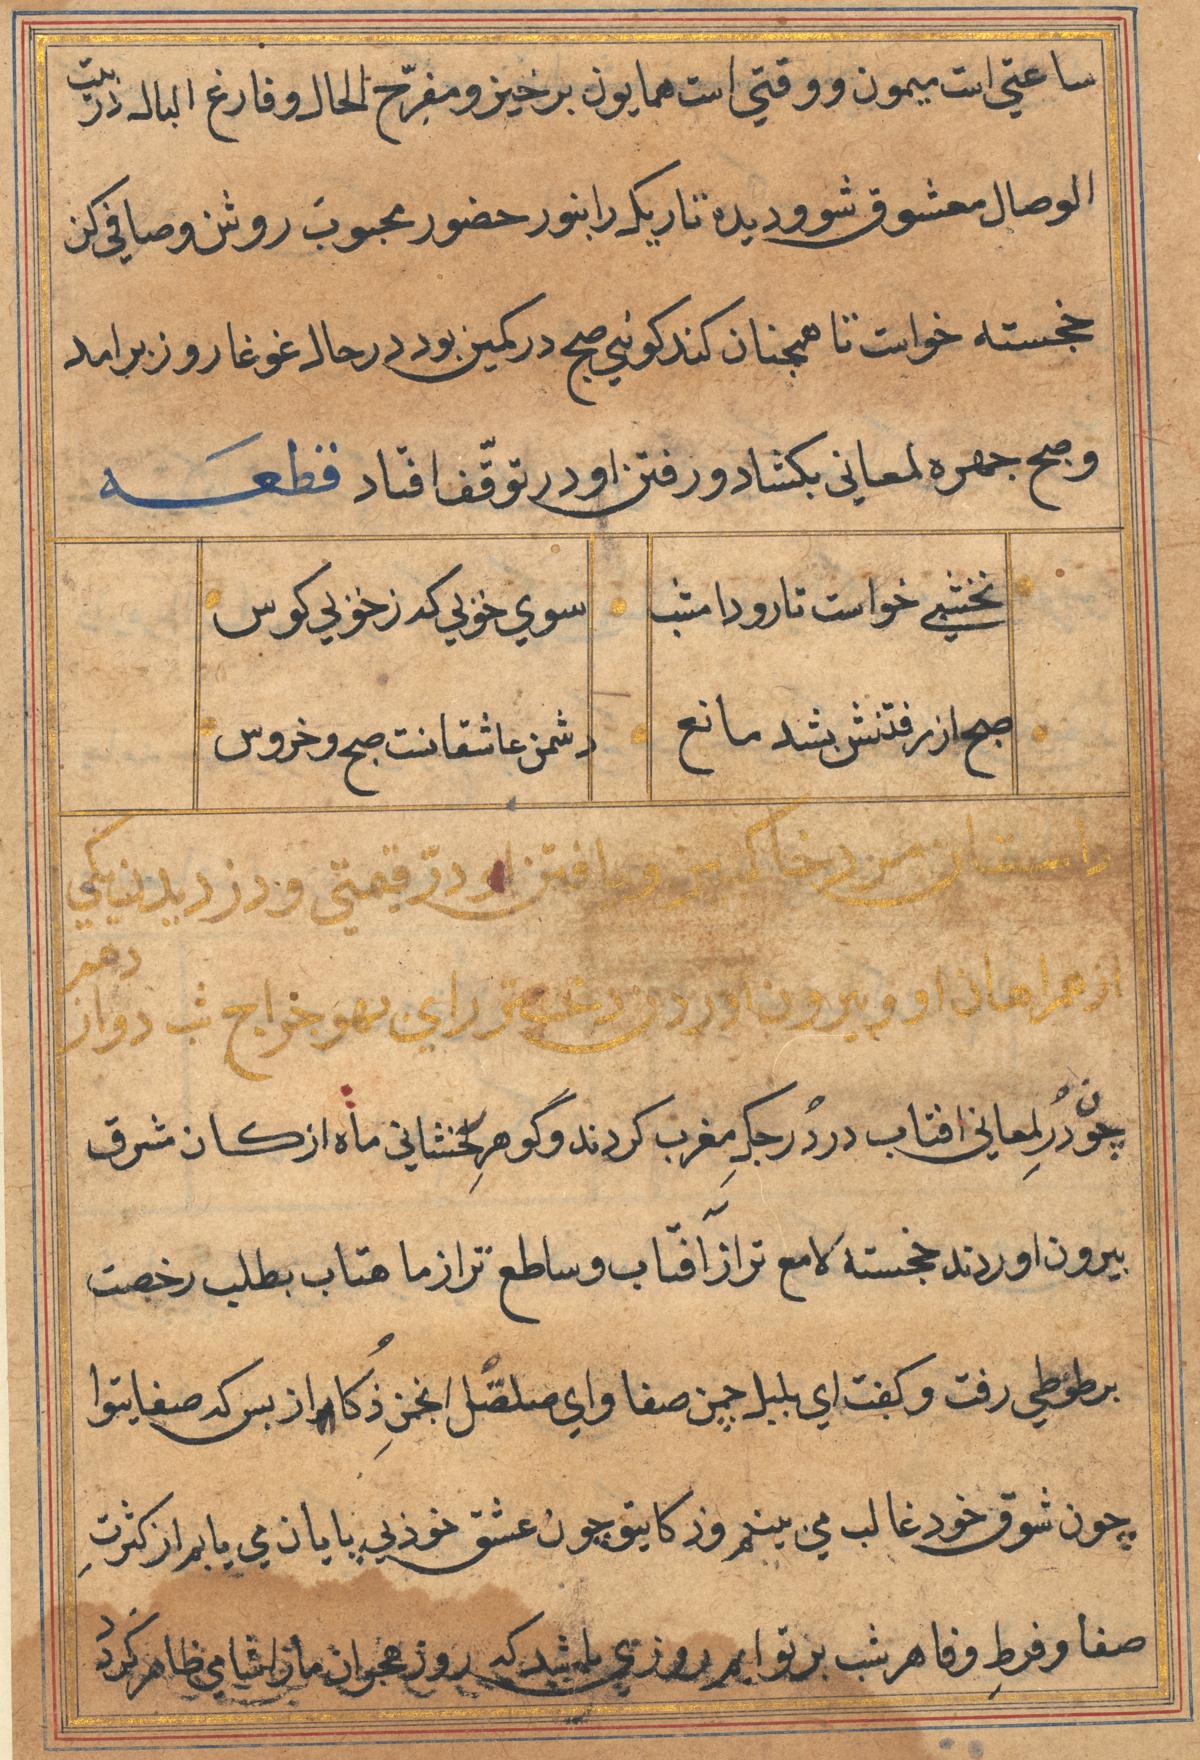 ساعتی است میمون و وقتی است همایون برخیز و مفرّح الحال و فارغ البال در بیت
الوصال معشوق شو و دیده تاریک را بنور حضور محبوب روشن و صافی کن
خجسته خواست تا همچنان کند کوئی صبح در کمین بود در حال غوغا روز برامد
و صبح چهره لمعانی بکشاد و رفتن او در توقّف افتاد قطعه
نخشبی خواست تا رود امشب سوی خوبی که ز خوبی کوس
صبح از رفتنش بشد مانع دشمن عاشقانست صبح و خروس
داستان مرد خاک بیز و یافتن او درّ قیمتی و دزدیدن یکی
از همراهان او و بیرون اوردن دختر رای بهوجراج شب دوازدهم
چون دُرِ لمعانی افتاب در دُرجکِ مغرب کردند و گوهرِ رخشانی ماه از کان شرق
بیرون اوردند خجسته لامع تر از افتاب و ساطع تر از ماهتاب بطلب رخصت
بر طوطی رفت و کفت ای بلبل چمن صفا و ای صلصُل انجمنِ ذُکا از بس که صفایتوا
چون شوق خود غالب می بینم و ز کایتو چون عشق خود بی پایان می یابم از کثرتِ
صفا و فرطِ وفا هر شب بر تو ایم روزی باشد که روز هجران مارا شامی ظاهر کردد